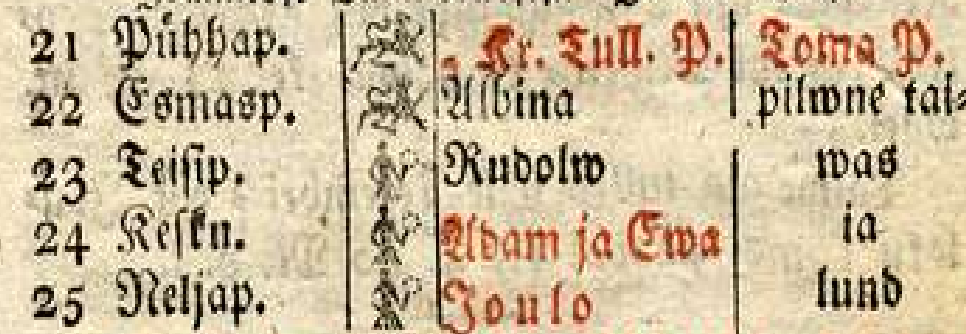 21 Pühhap. 4. Kr. Tull. P. Toma P.
22 Esmasp. Albina pilwne tai⸗
23 Teisip. Rudolw was
24 Keskn. Adam ja Ewa ja
25 Neljap. Joulo lund